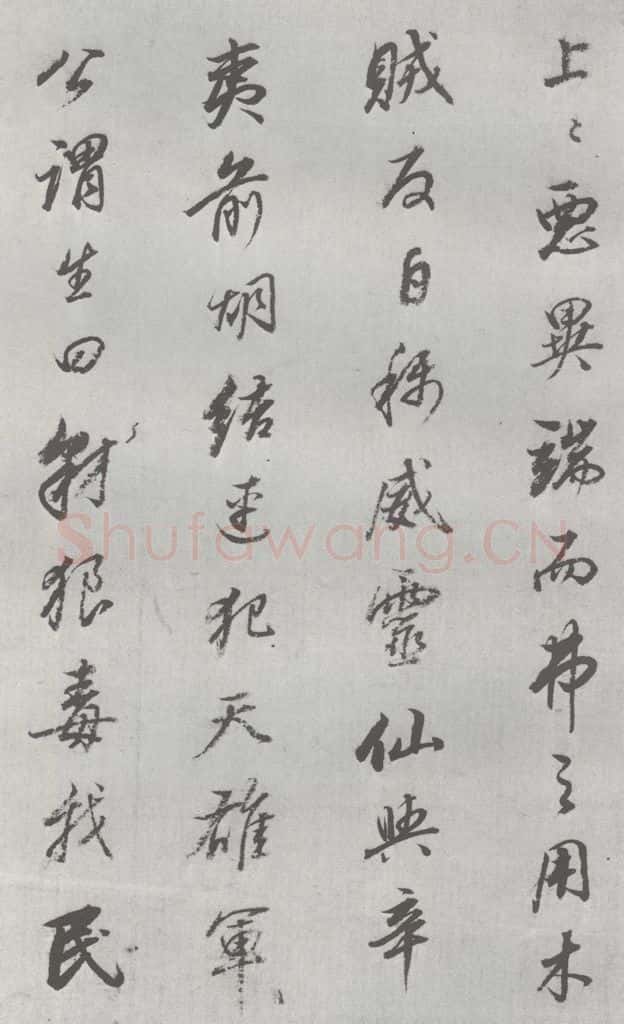 上〻惡異端而弗之用木
賊反自稱威靈仙與辛
夷前胡結連犯天雄軍
公謂生曰豺狼毒我民
Shufawang.CN